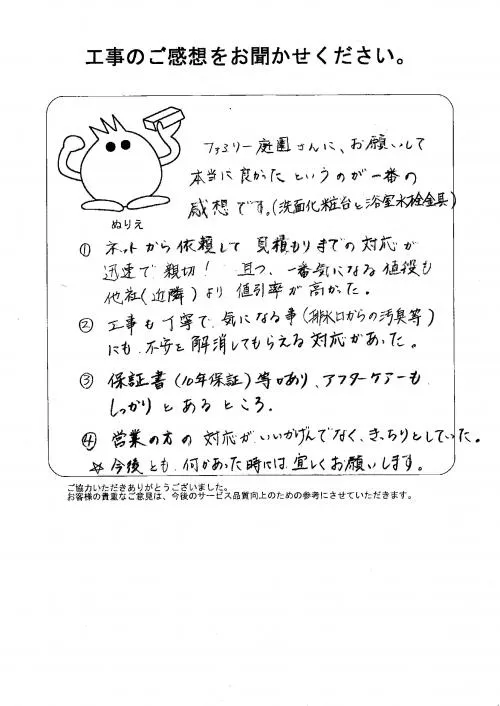 工事のご感想をお聞かせください。
ファミリー庭園さんに、お願いして
本当に良かったというのが一番の
感想です。(洗面化粧台と浴室水栓金具)
ぬりえ
① ネットから依頼して見積もりまでの対応が
迅速で親切! 且つ、一番気になる値段も
他社(近隣)より値引率が高かった。
② 工事も丁寧で、気になる事(排水口からの汚臭等)
にも、不安を解消してもらえる対応があった。
③ 保証書(10年保証)等があり、アフターケアーも
しっかりとあるところ。
④ 営業の方の対応が、いいかげんでなく、きっちりとしていた。
☆今後とも、何かあった時には宜しくお願いします。
ご協力いただきありがとうございました。
お客様の貴重なご意見は、今後のサービス品質向上のための参考にさせていただきます。